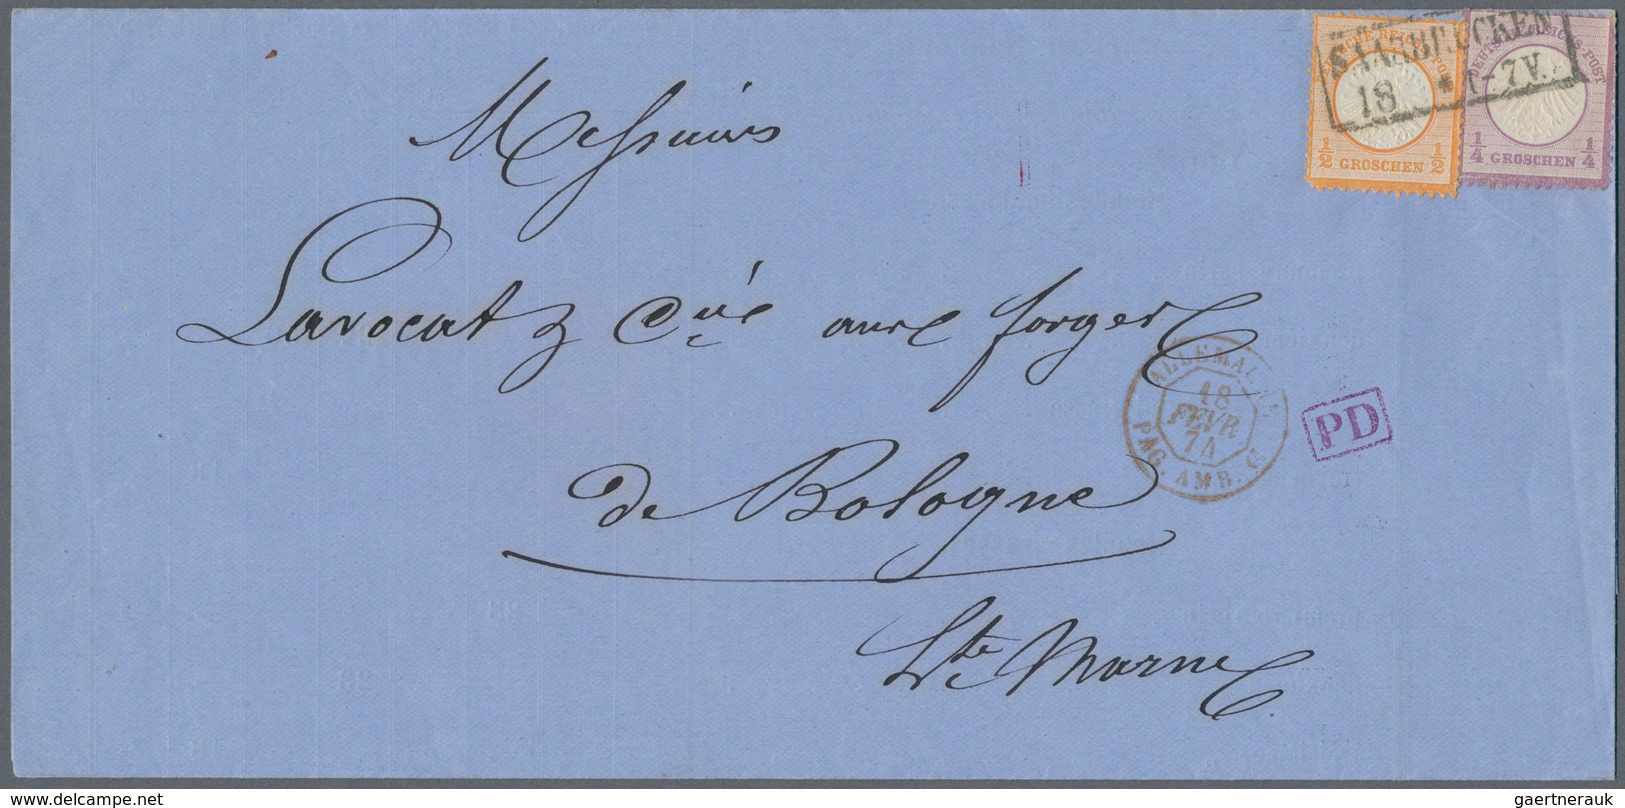 SAARBRÜCKEN
18 * 1-7V.
DEUTSCHE REICHS-POST
1/2 GROSCHEN 1/2
DEUTSCHE REICHS-POST
1/4 GROSCHEN 1/4
Messieurs
Lavocat & Cie aux forges
ALLEMAGNE
18
FEVR
74
PAG. AMB. C
PD
de Bologne
Hte Marne
delcampe.net
gaertnerauk